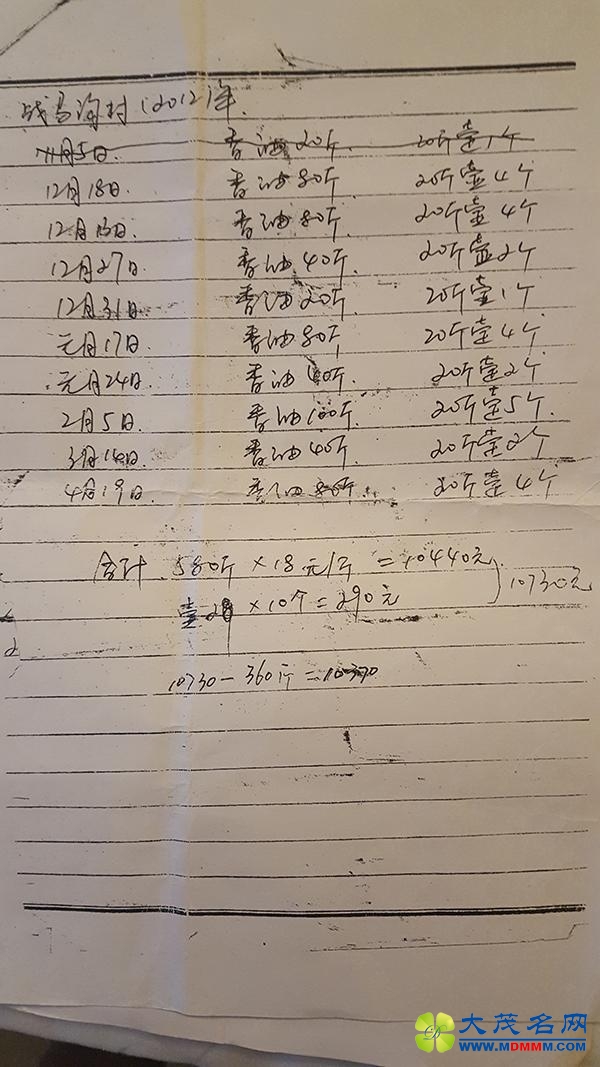 战马沟村（2012）年.
11月5日. 香油20斤. 20斤壶1个
12月18日. 香油80斤 20斤壶4个
12月13日. 香油80斤 20斤壶4个
12月27日. 香油40斤. 20斤壶2个
12月31日. 香油20斤. 20斤壶1个
元月17日. 香油80斤 20斤壶4个
元月24日. 香油40斤. 20斤壶2个
2月5日. 香油100斤. 20斤壶5个.
3月14日. 香油40斤. 20斤壶2个
4月19日. 香油 20斤壶4个
合计 580斤×18元/斤=10440元 10730元
壶 ×10个=290元
10730-360斤=10370
大茂名网
WWW.MDMMM.COM